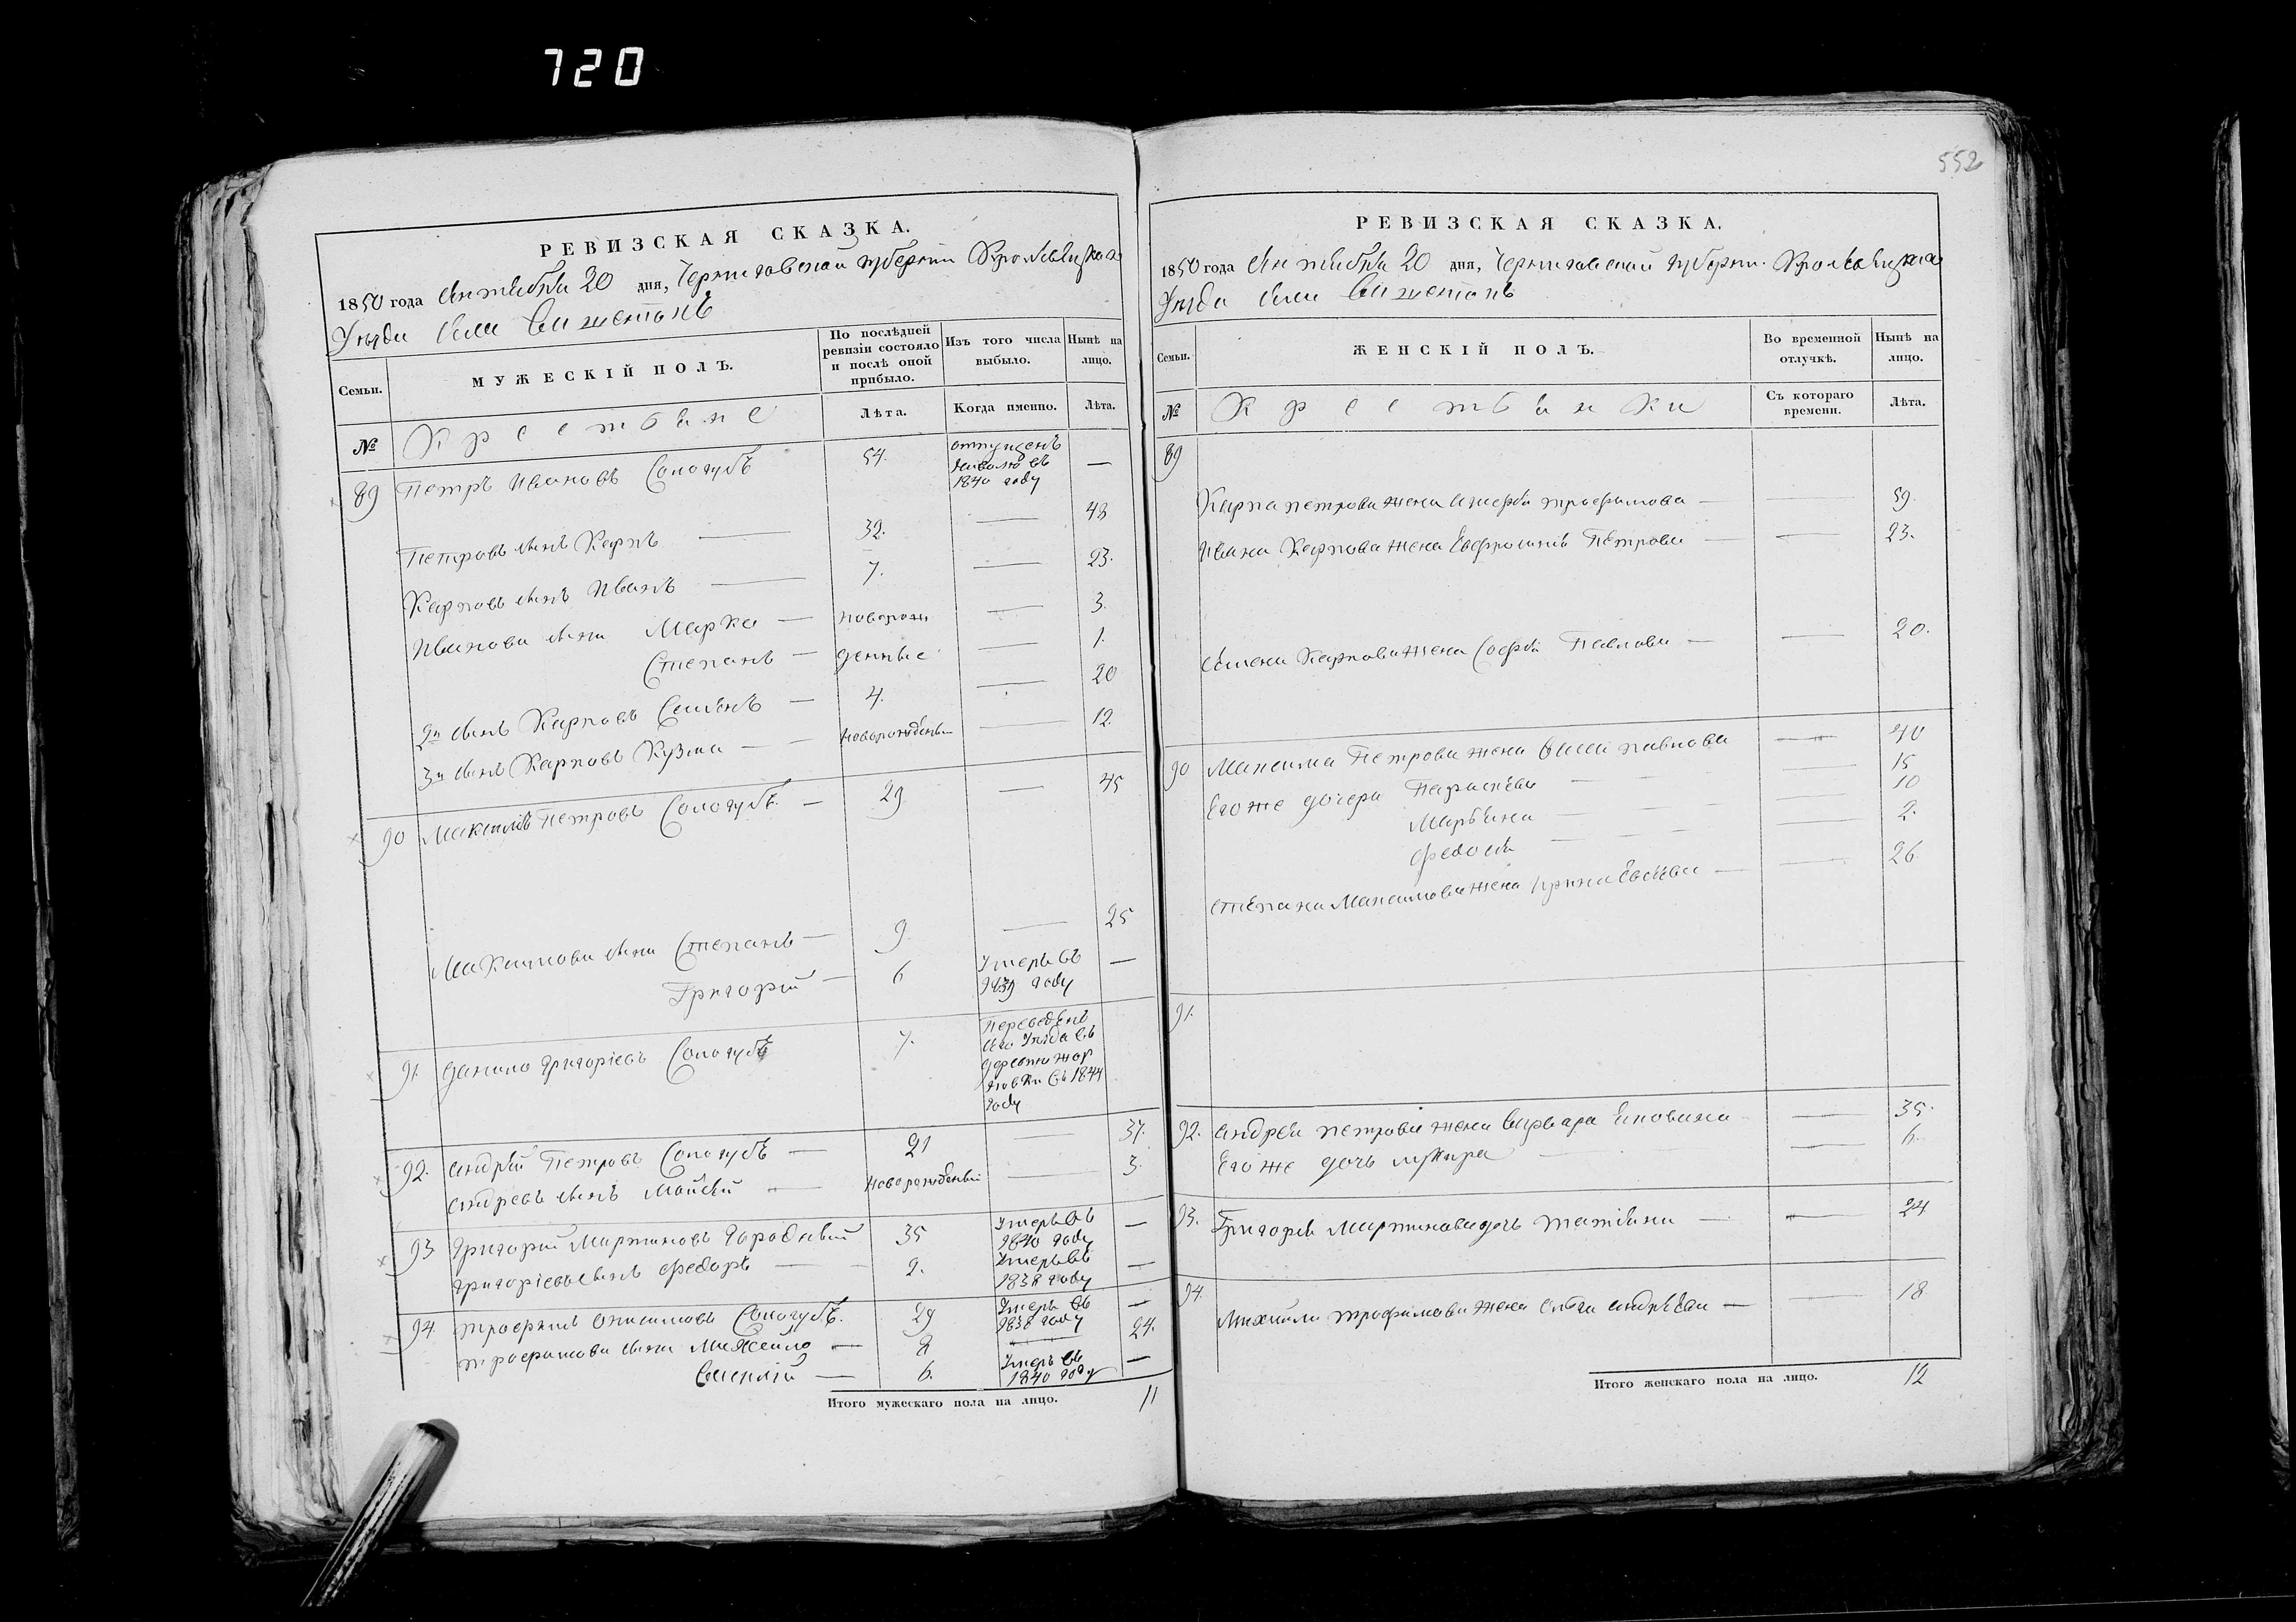 720
552
РЕВИЗСКАЯ СКАЗКА.
1850 года 20 дня, Черниговской губернии Кролевецкаго
Уезда Села
Семьи.
МУЖЕСКІЙ ПОЛЪ.
По послѣдней ревизіи состояло и послѣ оной прибыло.
Изъ того числа выбыло.
Нынѣ на лицо.
№
Крестьяне
Лѣта.
Когда именно.
Лѣта.
89 Петръ Ивановъ Сологубъ 54. отпущенъ
наволю въ
1840 году —
Петровъ сынъ Карпъ — 32. — 48
Карповъ сынъ Иванъ — 7. — 23.
Иванова сыны Марко — новорож — 3.
Степанъ — денные — 1.
2й сынъ Карповъ Семенъ — 4. — 20
3й сынъ Карповъ Кузма — — 12.
90 Максимъ Петровъ Сологубъ. — 29 — 45
Максимова сыны Степанъ — 9. — 25
Григорій — 6 Умеръ въ
1839 году —
91. Данило Григоріевъ Сологубъ 7. Переведенъ
въ 1844
году
92. Андрей Петровъ Сологубъ — 21 — 37.
Андреевъ сынъ Мойсей — Новорожденный — 3.
93 Григорій Мартиновъ 35 Умеръ въ
1840 году —
Григоріевъ сынъ Федоръ — 2. Умеръ въ
1838 году —
94. Трофимъ Онисимовъ Сологубъ. 29 Умеръ въ
1838 году —
Трофимова сыны Михайло — 8 — 24.
— 6. Умеръ въ
1840 году —
Итого мужескаго пола на лицо. 11
РЕВИЗСКАЯ СКАЗКА.
1850 года 20 дня, Черниговской губерни. Кролевецкаго
Уезда Села
Семьи.
ЖЕНСКІЙ ПОЛЪ.
Во временной отлучкѣ.
Нынѣ на лицо.
№
Крестьянки
Съ котораго времени.
Лѣта.
89
Карпа Петрова жена Трофимова — — 59.
Ивана Карпова жена Евфросинія Петрова — — 23.
Семена Карпова жена Софія Павлова — — 20.
90 Максима Петрова жена Павлова — 40
Его же дочери Параскева — — 15
Марѣина — — 10
Федосія — — 2.
Степана Максимова жена Ирина — — 26
91.
92. Андрея Петрова жена Варвара — 35.
Его же дочь — 6.
93. Григорія Мартинова дочь Татіана — — 24
94.
Михайла Трофимова жена Андрѣева — — 18
Итого женскаго пола на лицо. 12